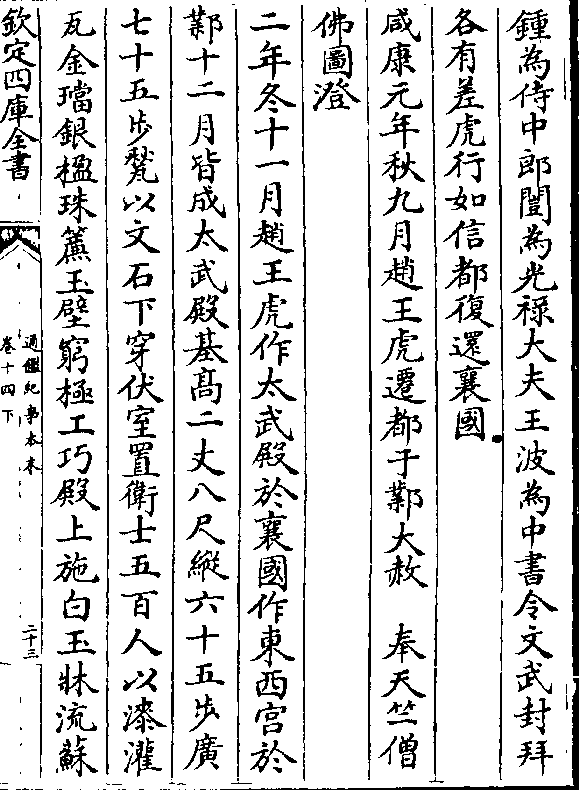 鍾為侍中郎闓為光禄大夫王波為中書令文武封拜
各有差虎行如信都復還襄國
咸康元年秋九月趙王虎遷都于鄴大赦　奉天竺僧
佛圖澄
二年冬十一月趙王虎作太武殿於襄國作東西宫於
鄴十二月皆成太武殿基髙二丈八尺縱六十五步廣
七十五步甃以文石下穿伏室置衛士五百人以漆灌
瓦金璫銀楹珠簾玉壁窮極工巧殿上施白玉牀流蘇
欽定四庫全書
通鑑紀事本末
卷十四下
二十三